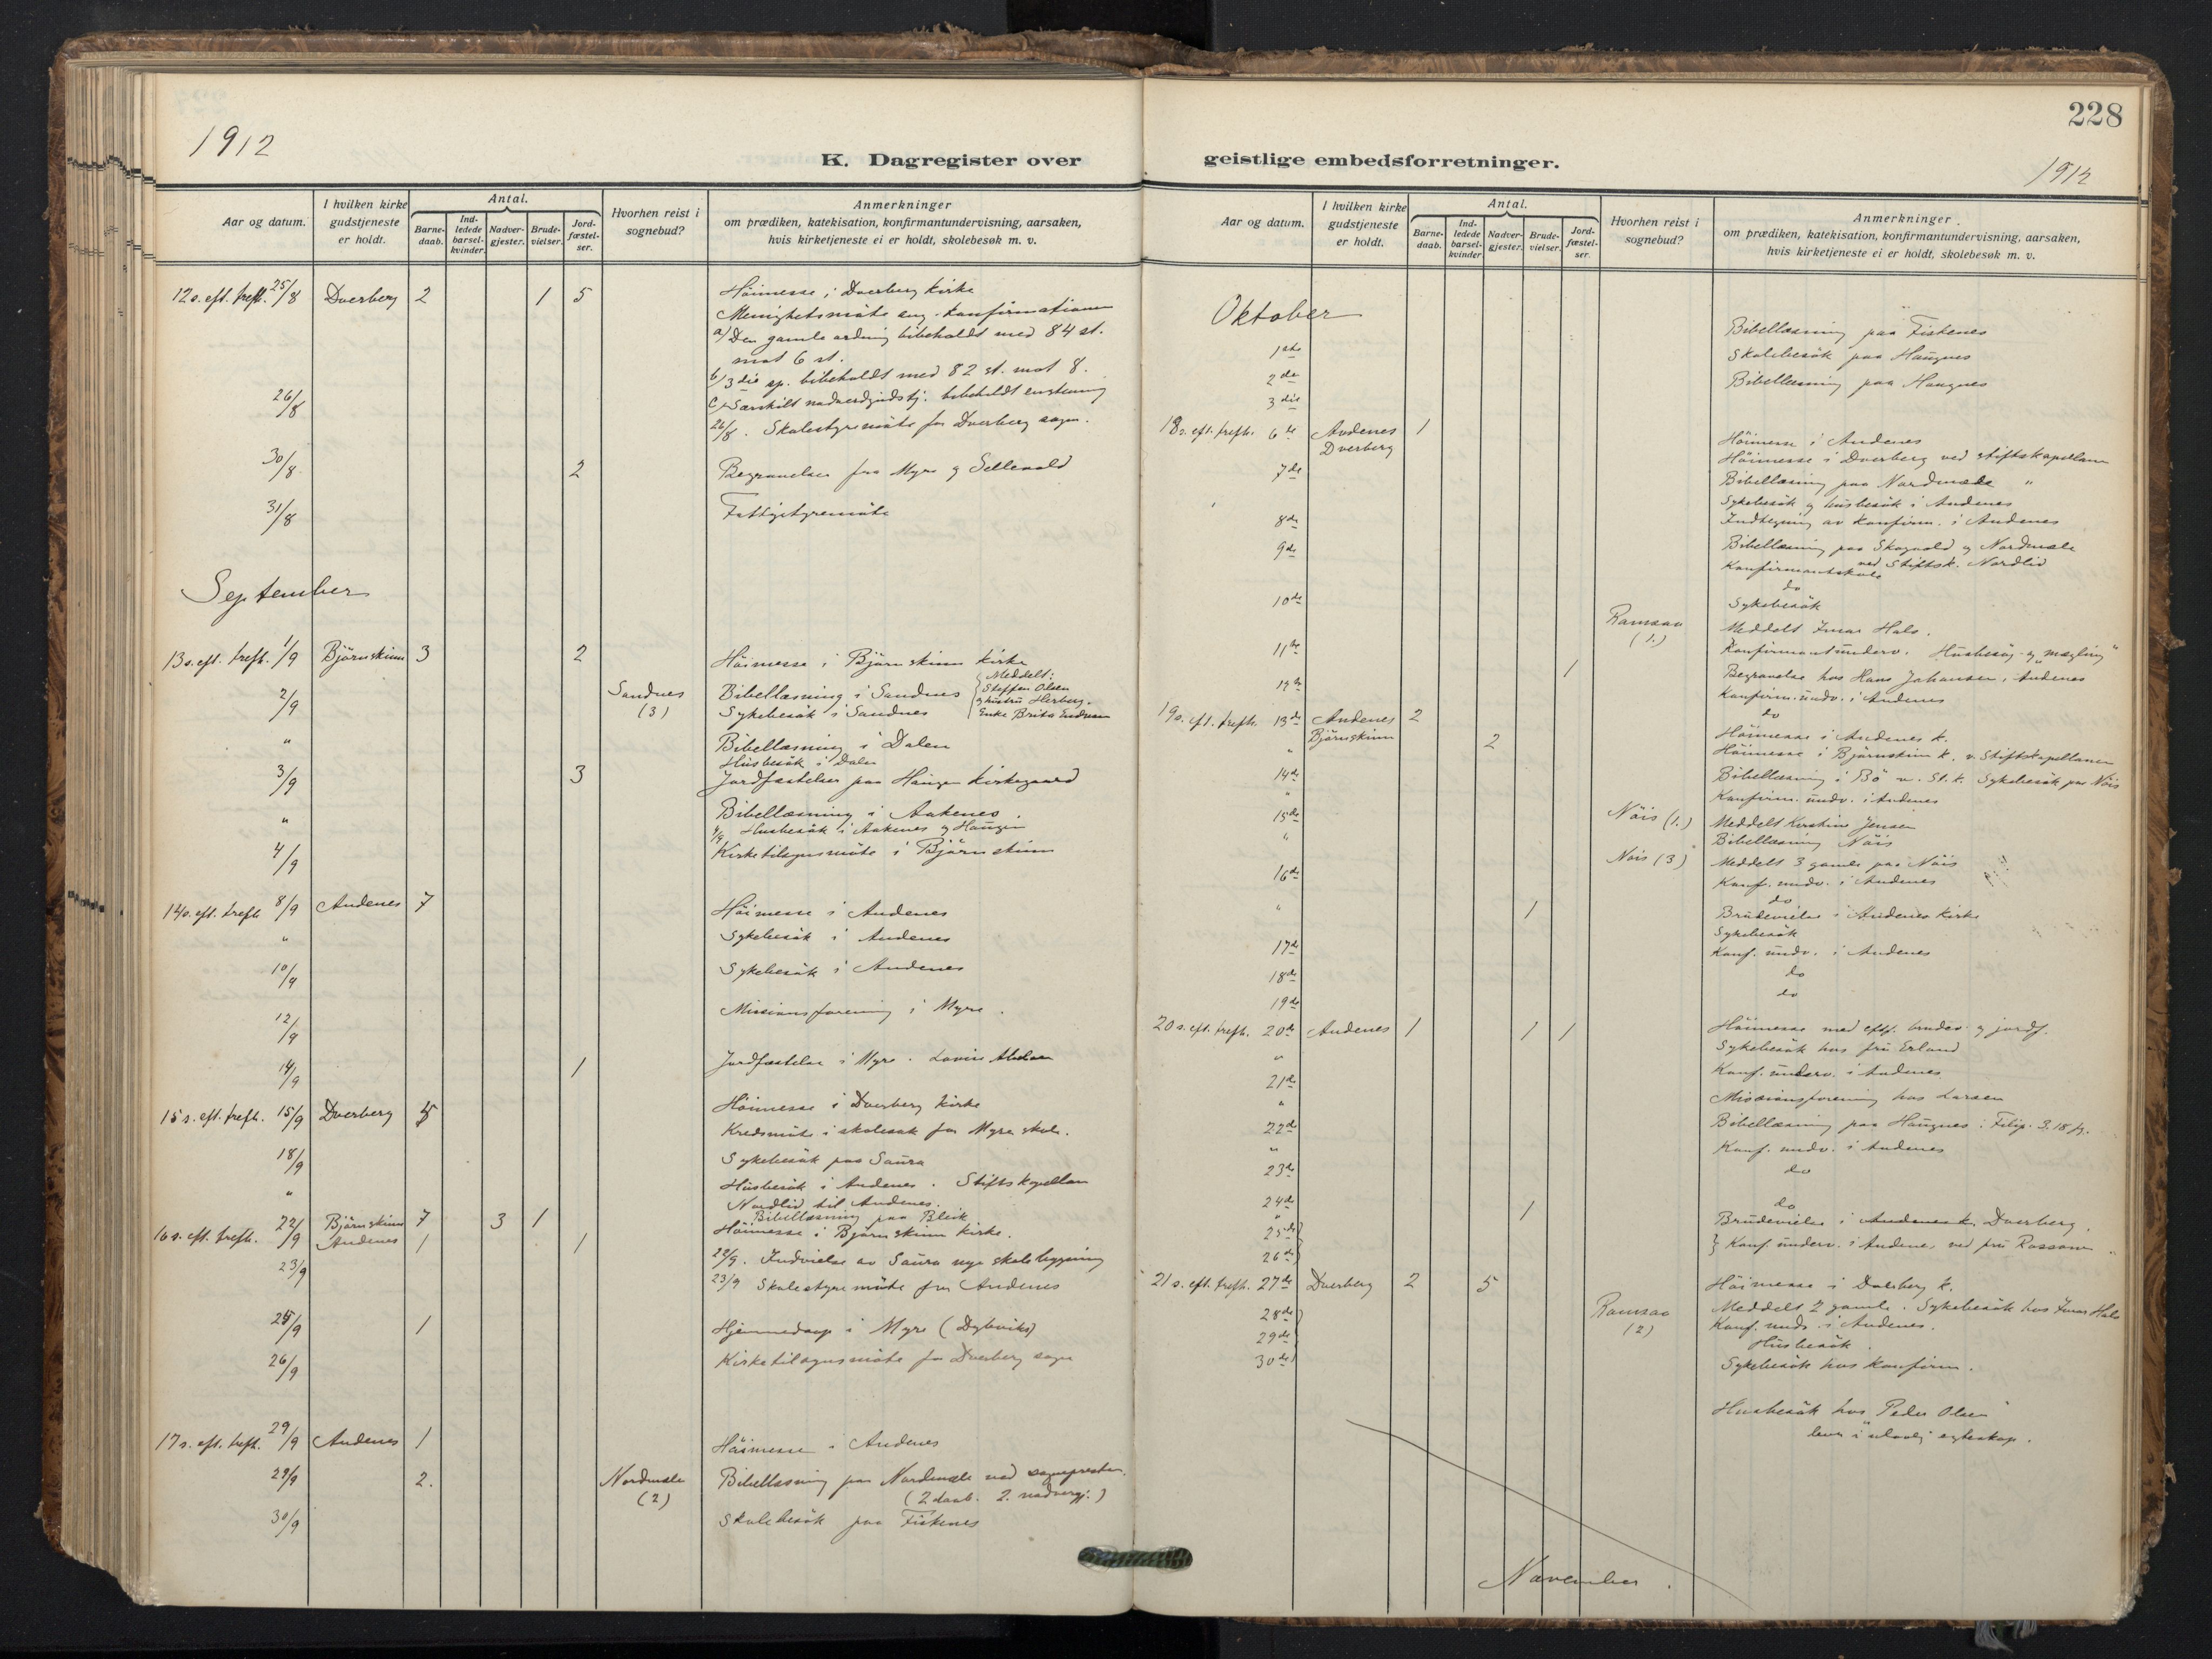 1912
K. Dagregister over
Aar og datum.
I hvilken kirke gudstjeneste er holdt.
Antal.
Barne-daab.
Ind-ledede barsel-kvinder.
Nadver-gjester.
Brude-vielser.
Jord-fæstel-ser.
Hvorhen reist i sognebud?
Anmerkninger
om prædiken, katekisation, konfirmantundervisning, aarsaken,
hvis kirketjeneste ei er holdt, skolebesøk m. v.
12 s. eft. treft. 25/8 Dverberg 2 1 5 Höimesse i Dverberg kirke
Menighetsmöte ang. konfirmationen
a) Den gamle ordning bibeholdt med 84 st.
mot 6 st.
b) 3die sp. bibeholdt med 82 st. mot 8.
26/8 c) Særskilt nadverdgudstj. bibeholdt enstemmig
26/8. Skolestyremöte for Dverberg sogn.
30/8 2 Begravelser fra Myre og Sellevold
31/8 Fattigstyremöte
September
13 s. eft. treft. 1/9 Björnskinn 3 2 Höimesse i Björnskinn kirke
2/9 Sandnes (3) Bibellæsning i Sandnes
Sykebesök i Sandnes
Meddelt:
Steffen Olsen
og hustru Herberg.
Enke Brita
" Bibellæsning i Dalen
Husbesök i Dalen
3/9 3 Jordfæstelser paa Haugen kirkegaard
" Bibellæsning i Aakenes.
4/9 Husbesök i Aakenes og Haugen
4/9 Kirketilsynsmöte i Björnskinn
14 s. eft. treft. 8/9 Andenes 7 Höimesse i Andenes
" Sykebesök i Andenes
10/9 Sykebesök i Andenes
12/9 Missionsforening i Myre.
14/9 1 Jordfæstelse i Myre.
15 s. eft. treft. 15/9 Dverberg Höimesse i Dverberg kirke
Kredsmöte i skolesak for Myre skole.
18/9 Sykebesök paa Saura
" Husbesök i Andenes. Stiftskapellan
Nordlid til Andenes.
Bibellæsning paa Bleik
16 s. eft. treft. 22/9 Björnskinn 7 3 1 Höimesse i Björnskinn kirke.
Andenes 1 1
23/9 22/9. Indvielse av Saura nye skolebygning
23/9 Skolestyremöte for Andenes
25/9 1 Hjemmedaap i Myre (Dybvik)
26/9 Kirketilsynsmöte for Dverberg sogn
17 s. eft. treft. 29/9 Andenes 1 Höimesse i Andenes
29/9 2. Nordmele (2) Bibellæsning paa Nordmele ved sognepresten.
(2 daab. 2. nadvergj.)
30/9 Skolebesök paa Fiskenes
228
geistlige embedsforretninger.
1912
Aar og datum.
I hvilken kirke gudstjeneste er holdt.
Antal.
Barne-daab.
Ind-ledede barsel-kvinder
Nadver-gjester.
Brude-vielser.
Jord-fæstel-ser.
Hvorhen reist i sognebud?
Anmerkninger
om prædiken, katekisation, konfirmantundervisning, aarsaken,
hvis kirketjeneste ei er holdt, skolebesøk m. v.
Oktober
1ste Bibellæsning paa Fiskenes
2de Skolebesök paa Haugnes
3die Bibellæsning paa Haugnes
18 s. eft. treft. 6te Andenes 1 Höimesse i Andenes
Dverberg Höimesse i Dverberg ved stiftskapellanen
7de Bibellæsning paa Nordmele "
Sykebesök og husbesök i Andenes
8de Indtegning av konfirm. i Andenes
9de Bibellæsning paa Skogvold og Nordmele
ved Stiftsk. Nordlid
Konfirmantskole
10de do
Sykebesök
Ramsaa (1.) Meddelt Hals.
11te Konfirmantunderv. Husbesög og mægling
12te 1 Begravelse hos Hans Johansen, Andenes
Konfirm. undv. i Andenes
do
19 s. eft. treft. 13de Andenes 2 Höimesse i Andenes k.
" Björnskinn 2 Höimesse i Björnskinn k. v. Stiftskapellanen
14de Bibellæsning i Bö v. St.k. Sykebesök paa Nöis
" Konfirm. undv. i Andenes
15de Nöis (1.) Meddelt Kirstine Jensen
" Bibellæsning Nöis
Nöis (3) Meddelt 3 gamle paa Nöis
16de Konf. undv. i Andenes
do
" 1 Brudevielse i Andenes kirke
Sykebesök
17de Konf. undv. i Andenes
18de do
19de do
20 s. eft. treft. 20de Andenes 1 1 1 Höimesse med eftf. brudev. og jordf.
" Sykebesök hos fru Erland
21de Konf. underv. i Andenes
" Missionsforening hos Larsen
22de Bibellæsning paa Haugnes: Filip. 3.18 fg.
" Konf. undv. i Andenes
23de do
24de do
" 1 Brudevielse i Andenes k. Dverberg.
25de
26de } Konf. underv. i Andenes ved fru
21 s. eft. treft. 27de Dverberg 2 5 Höimesse i Dverberg k.
28de Ramsaa (2) Meddelt 2 gamle. Sykebesök hos Hals
29de Konf. undv. i Andenes.
Husbesök.
30de Sykebesök hos konfirm.
Husbesök hos Peder Olsen
lever i ulovlig egteskap.
November.